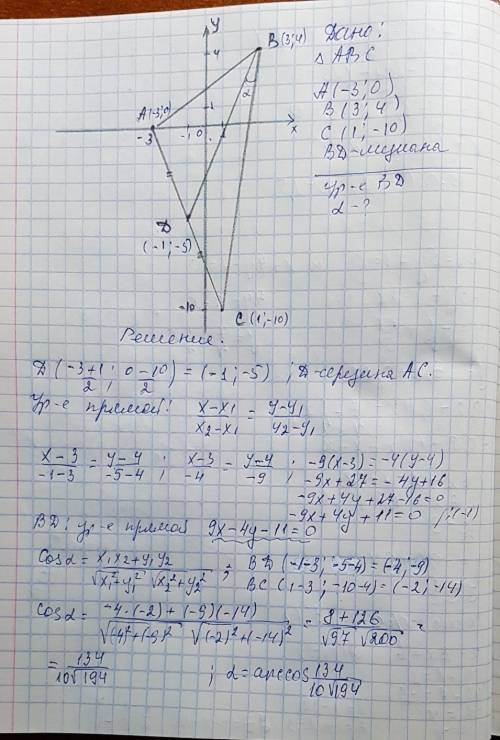 y
4
B(3;4)
Дано:
△ ABC
A(-3;0)
B(3;4)
C(1;-10)
BD-медиана
ур-е BD
α-?
α
A(-3;0)
1
-3
-1
0
x
D
(-1;-5)
-10
C(1;-10)
Решение.
D(-3+1/2; 0-10/2) = (-1;-5) ; D-середина AC.
Ур-е прямой: x-x₁/x₂-x₁ = y-y₁/y₂-y₁
x-3/-1-3 = y-4/-5-4 ; x-3/-4 = y-4/-9 ; -9(x-3) = -4(y-4)
-9x+27 = -4y+16
-9x+4y+27-16=0
-9x+4y+11=0 /:(-1)
BD: ур-е прямой 9x-4y-11=0
Cosα = x₁x₂+y₁y₂/√x₁²+y₁² √x₂²+y₂² ; BD(-1-3; -5-4)=(-4;-9)
BC(1-3; -10-4)=(-2;-14)
Cosα = -4·(-2)+(-9)(-14)/√(-4)²+(-9)² √(-2)²+(-14)² = 8+126/√97 √200 =
= 134/10√194 ; α=arccos 134/10√194